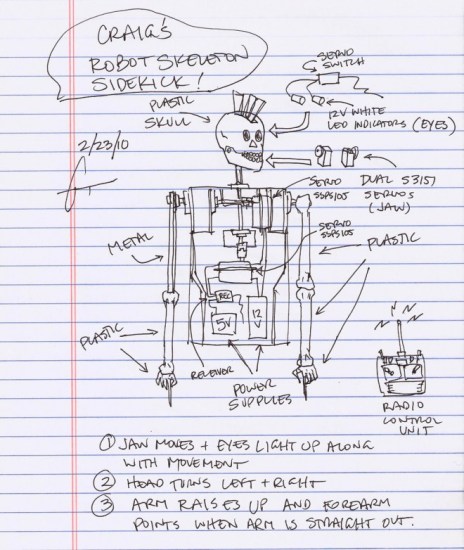 CRAIG'S
ROBOT SKELETON
SIDEKICK!
PLASTIC
SKULL
2/23/10
SERVO
SWITCH
12V WHITE
LED INDICATORS (EYES)
DUAL S3157
SERVOS
(JAW)
SERVO
SSPS105
SERVO
SSPS105
METAL
PLASTIC
PLASTIC
REC
5V
12
V
RECEIVER
POWER
SUPPLIES
RADIO
CONTROL
UNIT
① JAW MOVES + EYES LIGHT UP ALONG
WITH MOVEMENT
② HEAD TURNS LEFT + RIGHT
③ ARM RAISES UP AND FOREARM
POINTS WHEN ARM IS STRAIGHT OUT.